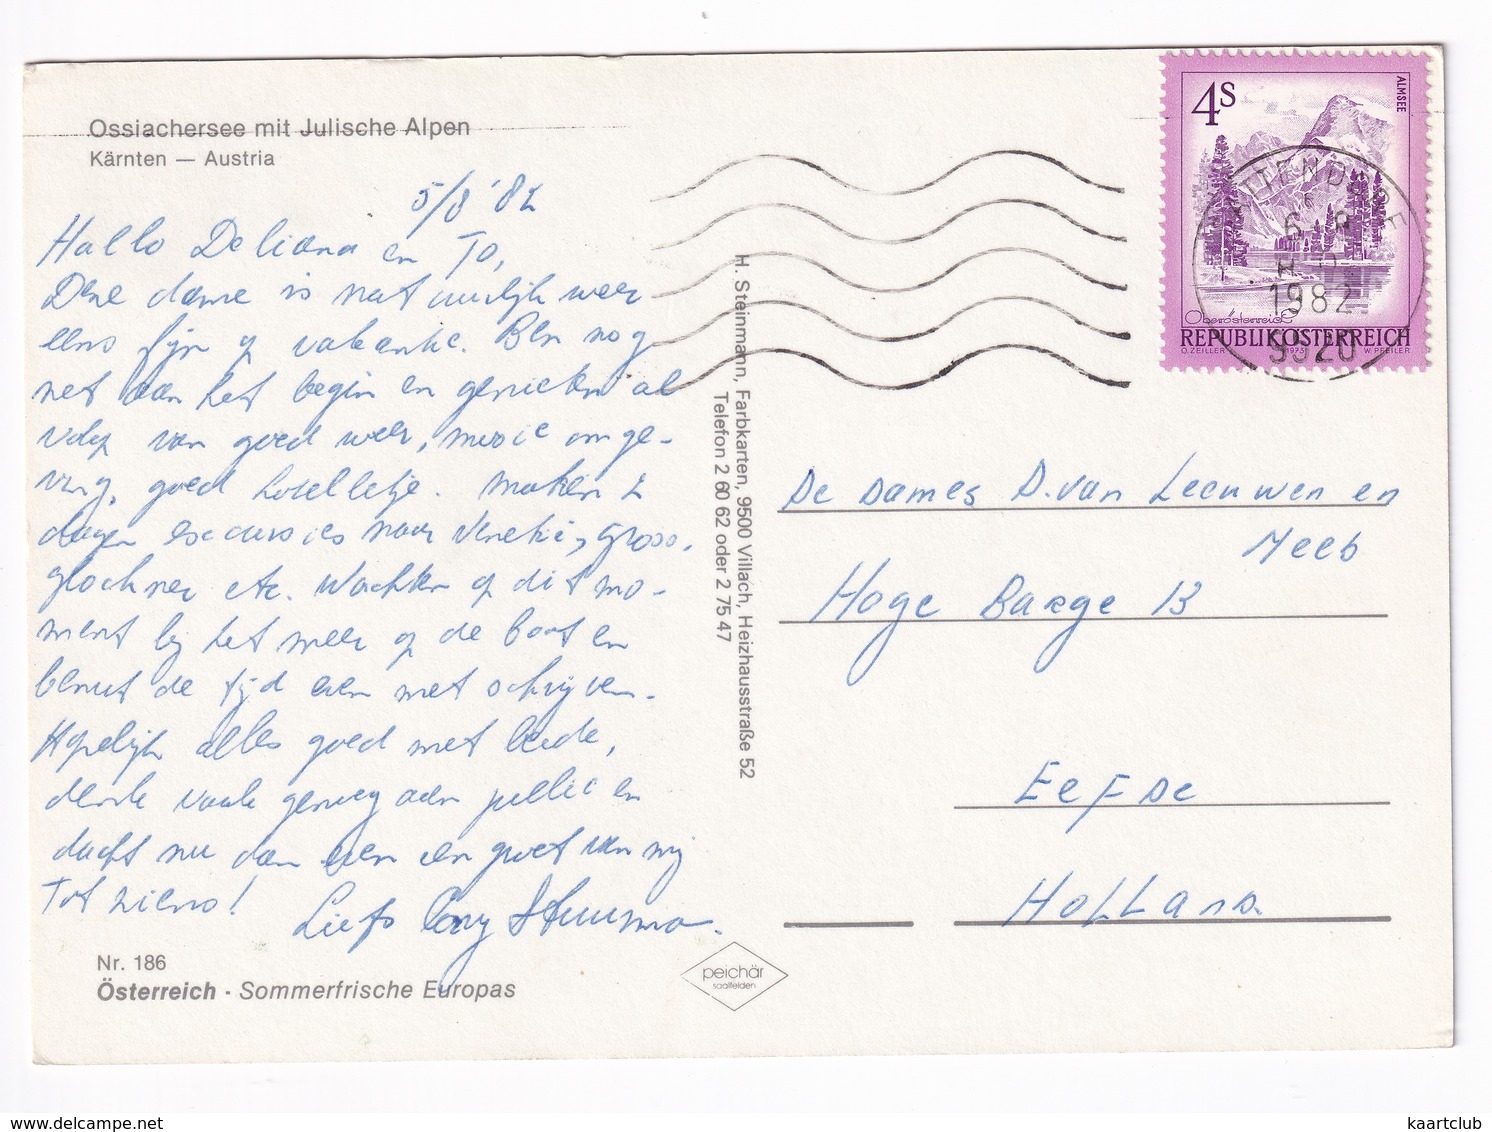 Ossiachersee mit Julische Alpen
Kärnten — Austria
5/8 '82
Hallo Deliana en To,
Deze dame is natuurlijk weer
eens fijn op vakantie. Ben nog
net aan het begin en genieten al
volop van goed weer, mooie omge-
ving, goed hotelletje. Maken 2
dagen excursies naar Venetië, Gross.
glockner etc. Wachten op dit mo-
ment bij het meer op de boot en
benut de tijd even met schrijven.
Hopelijk alles goed met beide,
denk vaak genoeg aan jullie en
dacht nu dan even een groet van mij
Tot ziens!
Liefs Cony
H. Steinmann, Farbkarten, 9500 Villach, Heizhausstraße 52
Telefon 2 60 62 oder 2 75 47
4S
ALMSEE
Oberösterreich
REPUBLIK ÖSTERREICH
O. ZEILLER 1973 W. PFEILER
1982
De Dames D. van Leeuwen en
Meeb
Hoge Barge 13
Eefde
Holland
Nr. 186
Österreich · Sommerfrische Europas
peichär
saalfelden
kaartclub
www.delcampe.net